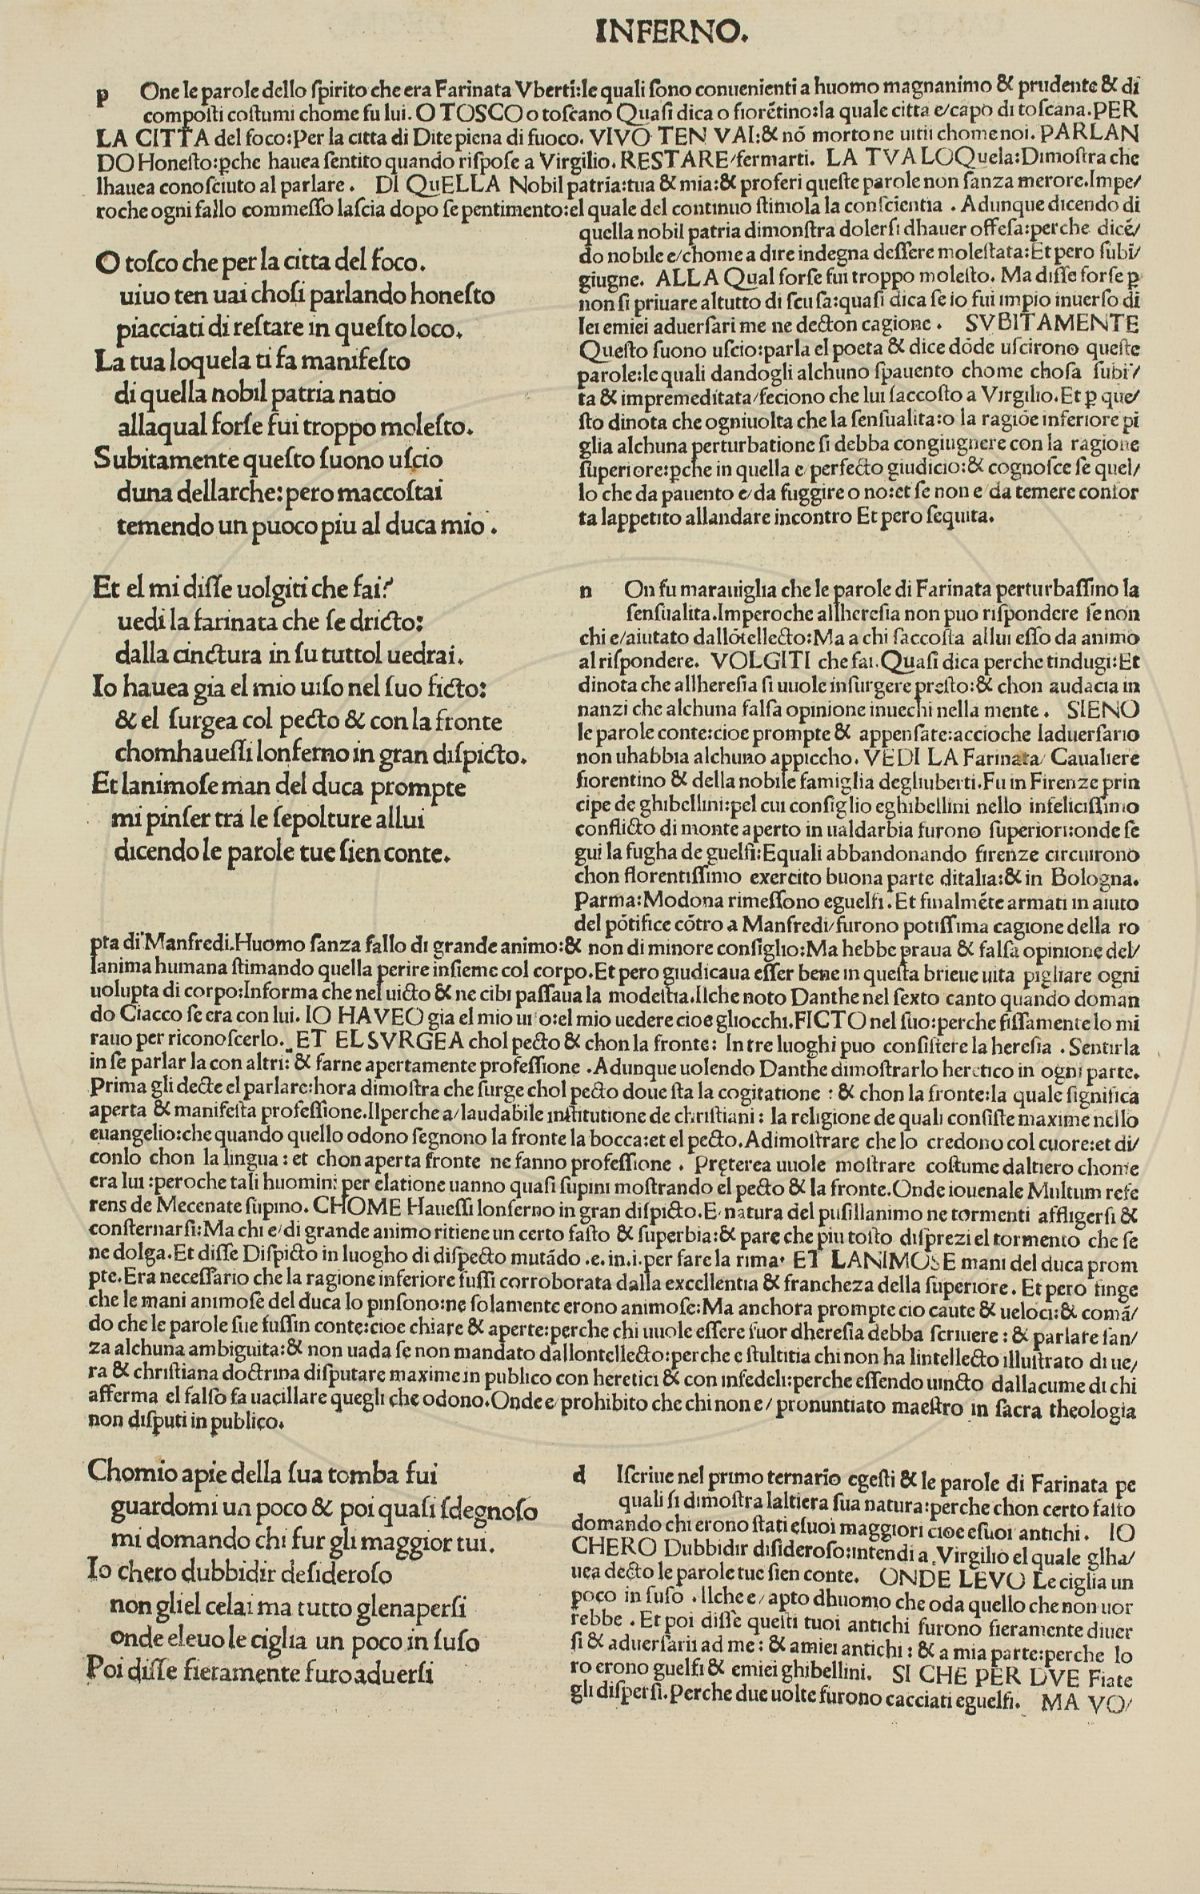 INFERNO.
p One le parole dello ſpirito che era Farinata Vberti:le quali ſono conuenienti a huomo magnanimo & prudente & di
compoſti coſtumi chome fu lui. O TOSCO o toſcano Quaſi dica o fiorẽtino:la quale citta e/capo di toſcana.PER
LA CITTA del foco:Per la citta di Dite piena di fuoco. VIVO TEN VAI:& nõ morto ne uitii chome noi. PARLAN
DO Honeſto:ꝑche hauea ſentito quando riſpoſe a Virgilio. RESTARE/fermarti. LA TVA LOQuela:Dimoſtra che
lhauea conoſciuto al parlare. DI QuELLA Nobil patria:tua & mia:& proferi queſte parole non ſanza merore.Impe/
roche ogni fallo commeſſo laſcia dopo ſe pentimento:el quale del continuo ſtimola la conſcientia . Adunque dicendo di
quella nobil patria dimonſtra dolerſi dhauer offeſa:perche dicẽ/
do nobile e/chome a dire indegna deſſere moleſtata:Et pero ſubi/
giugne. ALLA Qual forſe fui troppo moleſto. Ma diſſe forſe ꝑ
non ſi priuare altutto di ſcuſa:quaſi dica ſe io fui impio inuerſo di
lei emiei aduerſari me ne decton cagione . SVBITAMENTE
Queſto ſuono uſcio:parla el poeta & dice dõde uſcirono queſte
parole:le quali dandogli alchuno ſpauento chome choſa ſubi/
ta & impremeditata/feciono che lui ſaccoſto a Virgilio.Et ꝑ que/
ſto dinota che ogniuolta che la ſenſualita:o la ragiõe inferiore pi
glia alchuna perturbatione ſi debba congiugnere con la ragione
ſuperiore:ꝑche in quella e perfecto giudicio:& cognoſce ſe quel/
lo che da pauento e/da fuggire o no:et ſe non e da temere confor
ta lappetito allandare incontro Et pero ſequita.
O toſco che per la citta del foco.
uiuo ten uai choſi parlando honeſto
piacciati di reſtare in queſto loco.
La tua loquela ti fa manifeſto
di quella nobil patria natio
allaqual forſe fui troppo moleſto.
Subitamente queſto ſuono uſcio
duna dellarche:pero maccoſtai
temendo un puoco piu al duca mio .
Et el mi diſſe uolgiti che fai?
uedi la farinata che ſe dricto:
dalla cinctura in ſu tuttol uedrai.
Io hauea gia el mio uiſo nel ſuo ficto:
& el ſurgea col pecto & con la fronte
chomhaueſſi lonferno in gran diſpicto.
Et lanimoſe man del duca prompte
mi pinſer tra le ſepolture allui
dicendo le parole tue ſien conte.
n On fu marauiglia che le parole di Farinata perturbaſſino la
ſenſualita.Imperoche allhereſia non puo riſpondere ſe non
chi e/aiutato dallõtellecto:Ma a chi ſaccoſta allui eſſo da animo
al riſpondere. VOLGITI che fai.Quaſi dica perche tindugi:Et
dinota che allhereſia ſi uuole inſurgere preſto:& chon audacia in
nanzi che alchuna falſa opinione inuechi nella mente . SIENO
le parole conte:cioe prompte & appenſate:accioche laduerſario
non uhabbia alchuno appiccho. VEDI LA Farinata/ Caualiere
fiorentino & della nobile famiglia degliuberti.Fu in Firenze prin
cipe de ghibellini:pel cui conſiglio eghibellini nello infeliciſſimo
conflicto di monte aperto in ualdarbia furono ſuperiori:onde ſe
gui la fugha de guelfi:Equali abbandonando firenze circuirono
chon florentiſſimo exercito buona parte ditalia:& in Bologna.
Parma:Modona rimeſſono eguelfi. Et finalmẽte armati in aiuto
del põtifice cõtro a Manfredi/furono potiſſima cagione della ro
pta di Manfredi.Huomo ſanza fallo di grande animo:& non di minore conſiglio:Ma hebbe praua & falſa opinione del/
lanima humana ſtimando quella perire inſieme col corpo.Et pero giudicaua eſſer bene in queſta brieue uita pigliare ogni
uolupta di corpo:Informa che nel uicto & ne cibi paſſaua la modeſtia.Ilche noto Danthe nel ſexto canto quando doman
do Ciacco ſe era con lui. IO HAVEO gia el mio uiſo:el mio uedere cioe gliocchi.FICTO nel ſuo:perche fiſſamente lo mi
rauo per riconoſcerlo. ET EL SVRGEA chol pecto & chon la fronte: In tre luoghi puo conſiſtere la hereſia . Sentirla
in ſe parlar la con altri: & farne apertamente profeſſione . Adunque uolendo Danthe dimoſtrarlo heretico in ogni parte.
Prima gli decte el parlare:hora dimoſtra che ſurge chol pecto doue ſta la cogitatione : & chon la fronte:la quale ſignifica
aperta & manifeſta profeſſione.Ilperche a/laudabile inſtitutione de chriſtiani : la religione de quali conſiſte maxime nello
euangelio:che quando quello odono ſegnono la fronte la bocca:et el pecto.Adimoſtrare che lo credono col cuore:et di/
conlo chon la lingua : et chon aperta fronte ne fanno profeſſione . Pręterea uuole moſtrare coſtume daltiero chome
era lui :peroche tali huomini per elatione uanno quaſi ſupini moſtrando el pecto & la fronte.Onde iouenale Multum refe
rens de Mecenate ſupino. CHOME Haueſſi lonferno in gran diſpicto.E/natura del puſillanimo ne tormenti affligerſi &
conſternarſi:Ma chi e/di grande animo ritiene un certo faſto & ſuperbia:& pare che piu toſto diſprezi el tormento che ſe
ne dolga.Et diſſe Diſpicto in luogho di diſpecto mutãdo .e. in.i.per fare la rima. ET LANIMOSE mani del duca prom
pte.Era neceſſario che la ragione inferiore fuſſi corroborata dalla excellentia & francheza della ſuperiore. Et pero finge
che le mani animoſe del duca lo pinſono:ne ſolamente erono animoſe:Ma anchora prompte cio caute & ueloci:& comã/
do che le parole ſue fuſſin conte:cioe chiare & aperte:perche chi uuole eſſere fuor dhereſia debba ſcriuere : & parlare ſan/
za alchuna ambiguita:& non uada ſe non mandato dallontellecto:perche e ſtultitia chi non ha lintellecto illuſtrato di ue/
ra & chriſtiana doctrina diſputare maxime in publico con heretici & con infedeli:perche eſſendo uincto dallacume di chi
afferma el falſo fa uacillare quegli che odono.Onde e/prohibito che chi non e/ pronuntiato maeſtro in ſacra theologia
non diſputi in publico.
Chomio apie della ſua tomba fui
guardomi un poco & poi quaſi ſdegnoſo
mi domando chi fur gli maggior tui.
Io chero dubbidir deſideroſo
non gliel celai ma tutto glenaperſi
onde eleuo le ciglia un poco in ſuſo
Poi diſſe fieramente furo aduerſi
d Iſcriue nel primo ternario egeſti & le parole di Farinata pe
quali ſi dimoſtra laltiera ſua natura:perche chon certo faſto
domando chi erono ſtati eſuoi maggiori cioe eſuoi antichi. IO
CHERO Dubbidir diſideroſo:intendi a Virgilio el quale glha/
uea decto le parole tue ſien conte. ONDE LEVO Le ciglia un
poco in ſuſo . Ilche e/ apto dhuomo che oda quello che non uor
rebbe . Et poi diſſe queſti tuoi antichi furono fieramente diuer
ſi & aduerſarii ad me : & amiei antichi : & a mia parte:perche lo
ro erono guelfi & emiei ghibellini. SI CHE PER DVE Fiate
gli diſperſi.Perche due uolte furono cacciati eguelfi. MA VO/